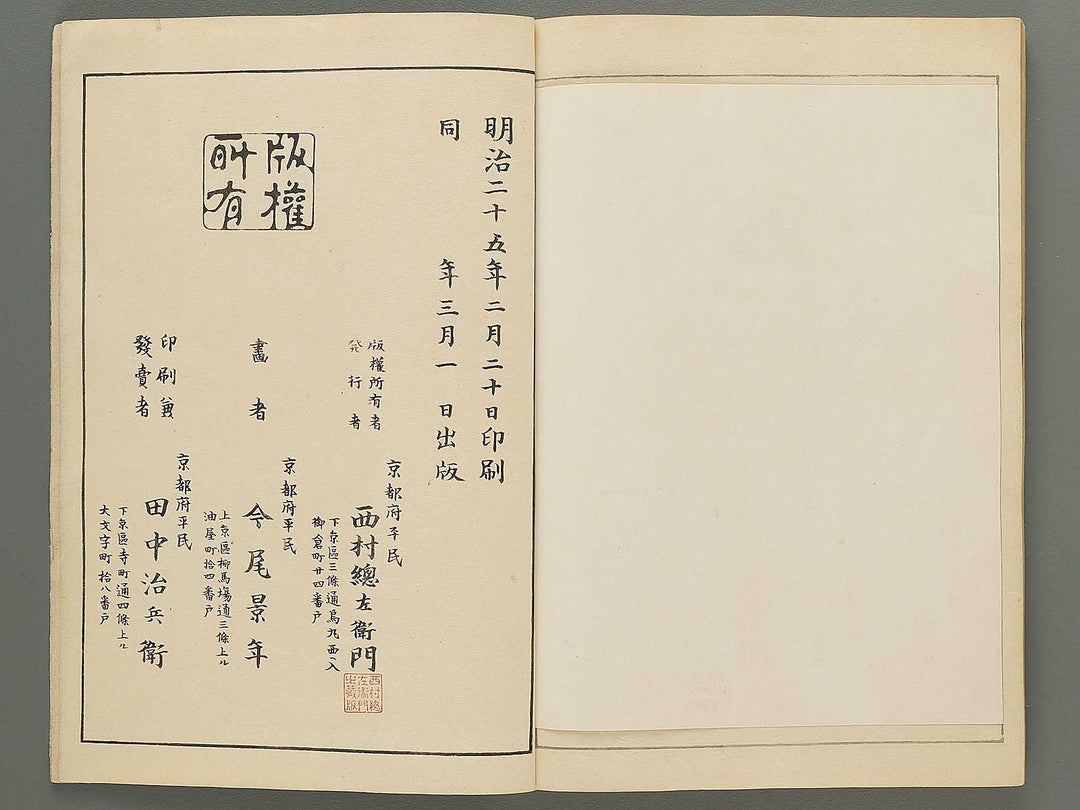 明治二十五年二月二十日印刷
同年三月一日出版
版權
所有
版權所有者
発行者
京都府平民
西村總左衛門
下京區三條通烏丸西入
御倉町廿四番戸
西村總
左衛門
出藏版
畫者
京都府平民
今尾景年
上京區柳馬塲通三條上ル
油屋町拾四番戸
印刷兼
發賣者
京都府平民
田中治兵衛
下京區寺町通四條上ル
大文字町拾八番戸